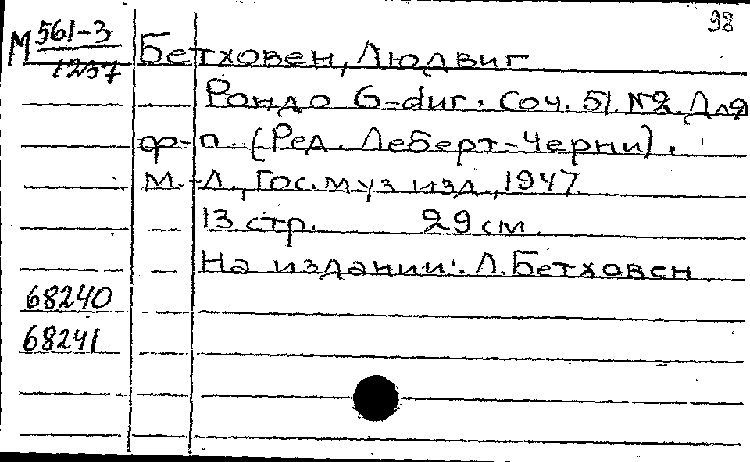 98
М 561-3
1237
Бетховен, Людвиг
Рондо G-dur. Соч. 51 №2. Для
ф-п. (Ред. Леберт-Черни).
М.-Л., Гос. муз изд., 1947.
13 стр. 29 см.
На издании: Л. Бетховен
68240
68241